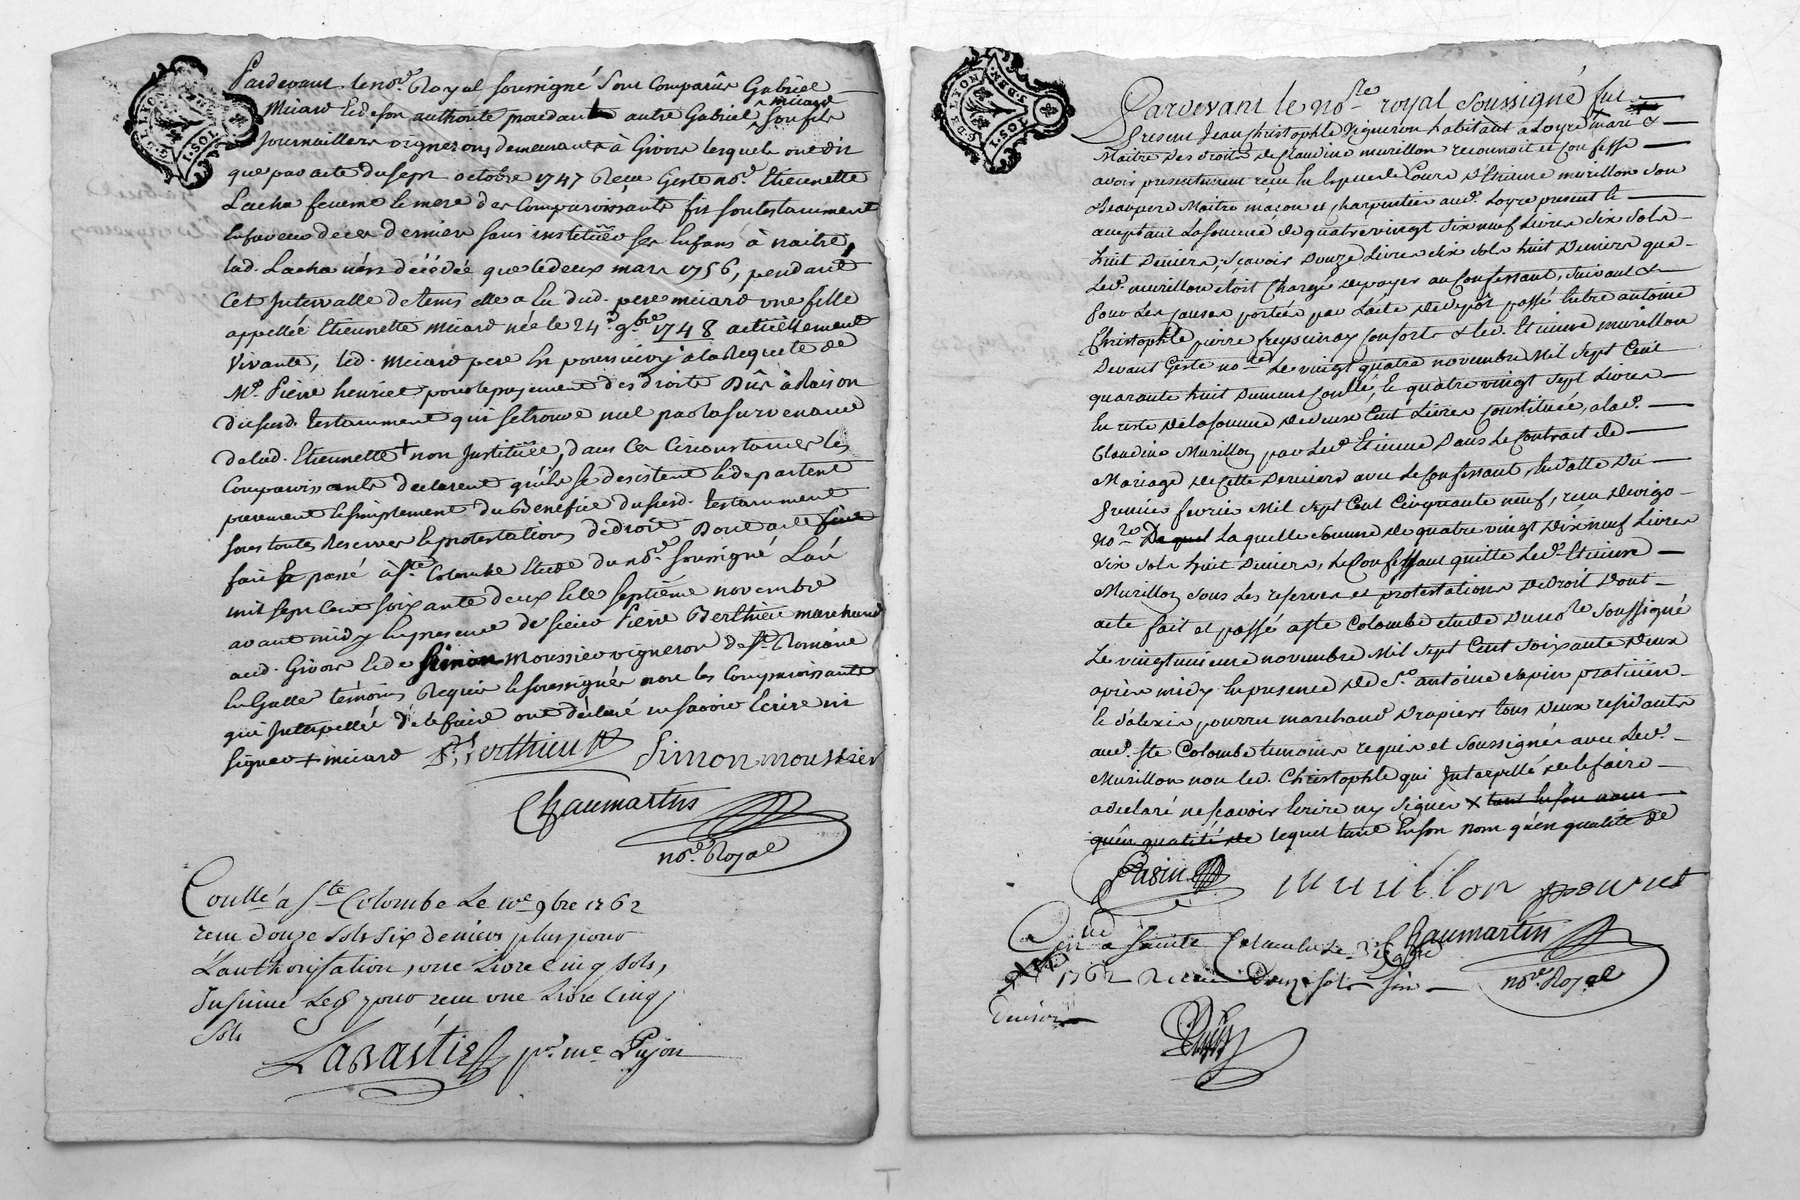 G. DE LYON
1. SOL
Pardevant le no.re Royal soussigné sont comparûs Gabriel
micard et de son authorité procedant autre Gabriel micard son fils
journailliers vignerons demeurants à Givors lesquels ont dit
que par acte du sept octobre 1747 reçu Geste no.re Etiennette
Lacha femme et mere des comparoissants fit son testament
en faveur de ce dernier sans instituer ses enfans à naitre,
lad. Lacha n'est décédée que le deux mars 1756, pendant
cet Intervalle de tems elle a eu dud. pere micard une fille
appellée Etiennette micard née le 24.e 9.bre 1748 actuellement
vivante, led. micard pere est poursuivy a la Requete de
M.e Pierre henriet pour le payement des droits dûs à raison
du susd. testament qui se trouve nul par la survenance
de lad. Etiennette + non Instituée, dans ces circonstances les
comparoissants declarent qu'ils se desistent et departent
purement et simplement du Benefice du susd. testament
sous toutes reserves et protestations de droit Dont acte
fait et passé à Ste Colombe Etude du no.re soussigné L'an
mil sept cent soixante deux et le septième novembre
avant midy en presence de sieur Pierre Berthieu marchand
aud. Givors et de Simon Moussier vigneron de St. Romain
en Galle témoins Requis et soussignés non les comparoissants
qui Interpellés de le faire ont déclaré ne savoir Ecrire ni
signer + micard P. Berthieu Simon moussier
Chaumartin
no.re Royal
Conllé à Ste Colombe Le 10e 9bre 1762
reçu douze sols six deniers plus pour
L'authorisation, une Livre cinq sols,
Insinué Led. jour reçu une Livre Cinq
sols
Labastie pr. me Pujon
G. DE LYON
1. SOL
Pardevant le no.re royal soussigné fut
Present Jean Christophle vigneron habitant a Loyre mari &
Maitre des droits de Claudine murillon reconnoit et confesse
avoir presentement reçu en espece de Cours d'Etienne murillon son
Beaupere Maitre maçon et charpentier aud. Loyre present et
acceptant La somme de quatre vingt dix neuf Livres dix sols
huit Deniers, sçavoir Douze Livres dix sols huit Deniers que
Led. murillon étoit Chargé de payer au Confessant, suivant &
pour Les causes portées par L'acte de depôt passé entre antoine
Christophle pierre freyssinay consorts & led. Etienne murillon
Devant Geste no.re Le vingt quatre novembre Mil sept Cent
quarante huit Dument Conllé, & quatre vingt sept Livres
En reste de la somme de deux Cent Livres Constituée, a lad.
Claudine Murillon par Led. Etienne Dans Le Contrat de
Mariage de cette Derniere avec Le Confessant, en datte Du
premier fevrier Mil sept Cent Cinquante neuf, reçu Devigo
No.re De quel Laquelle somme de quatre vingt dix neuf Livres
dix sols huit Deniers, Le Confessant quitte Led. Etienne
Murillon sous Les reserves et protestations de Droit Dont
acte fait et passé a Ste Colombe etude Du no.re soussigné
Le vingtunieme novembre Mil sept Cent soixante Deux
après midy en presence de S.r antoine sapin praticien
& d'alexis pourret marchand Drapiers tous Deux residants
aud. Ste Colombe temoins requis et soussignés avec Led.
Murillon non led. Christophle qui Interpellé de le faire
a declaré ne sçavoir Ecrire ny signer x tant en son nom
qu'en qualité de lequel tant en son nom qu'en qualité de
Sapin murillon pourret
Chaumartin
no.re Royal
à Sainte Colombe Le
1762 Recu Douze sols six
Deniers